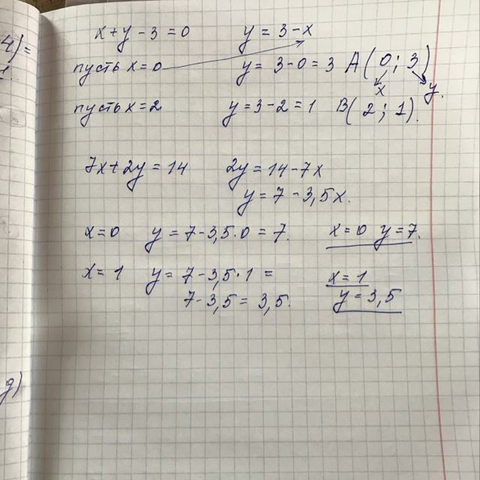 4)=
x+y-3=0 y = 3-x
пусть x=0 y = 3-0=3 A(0; 3)
x y
пусть x=2 y=3-2=1 B(2; 1).
7x+2y=14 2y=14-7x
y=7-3,5x.
x=0 y=7-3,5·0=7. x=0 y=7.
x=1 y=7-3,5·1= x=1
7-3,5=3,5. y=3,5
g)